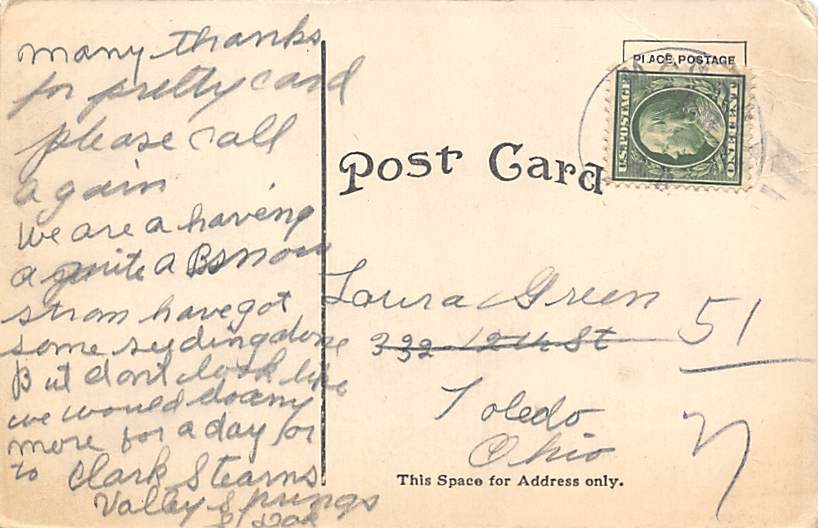 many thanks
for pretty card
please call
again
We are a having
a quite a snow
strom have got
some seydingdone
But dont look like
we would do any
more for a day or
to Clark Stearns
Valley Springs
S Dak
PLACE POSTAGE
U.S. POSTAGE
ONE CENT
Post Card
Laura Green
332 12th St
51
Toledo
Ohio
This Space for Address only.